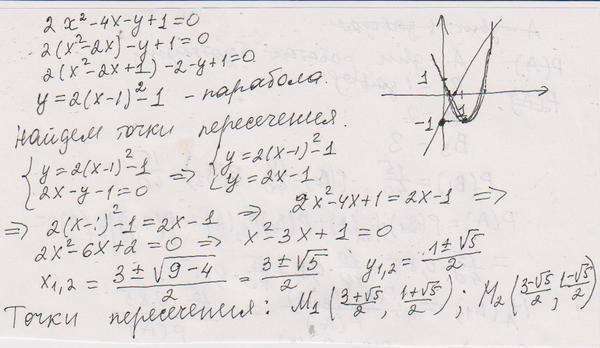 2x²-4x-y+1=0
2(x²-2x)-y+1=0
2(x²-2x+1)-2-y+1=0
y=2(x-1)²-1 - парабола.
1
-1
1
Найдем точки пересечения.
{y=2(x-1)²-1 ⇒ {y=2(x-1)²-1
{2x-y-1=0 {y=2x-1
⇒ 2(x-1)²-1=2x-1 ⇒ 2x²-4x+1=2x-1 ⇒
2x²-6x+2=0 ⇒ x²-3x+1=0
x₁,₂ = (3±√(9-4))/2 = (3±√5)/2 y₁,₂ = (1±√5)/2
Точки пересечения: M₁((3+√5)/2, (1+√5)/2); M₂((3-√5)/2, (1-√5)/2)